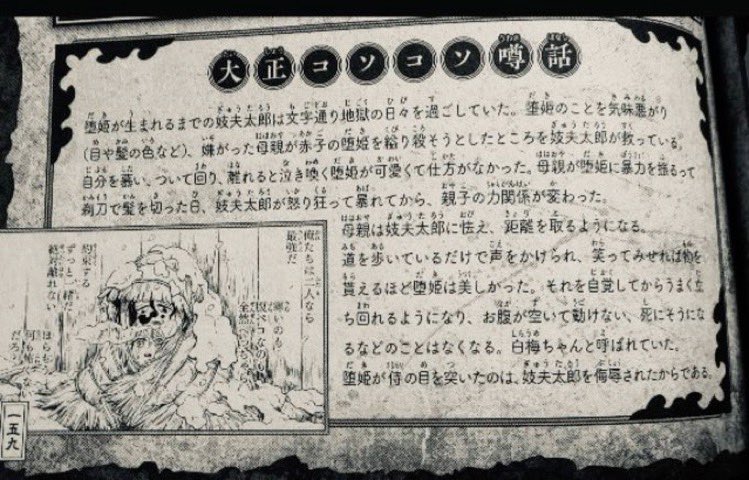 大正コソコソ噂話
堕姫が生まれるまでの妓夫太郎は文字通り地獄の日々を過ごしていた。堕姫のことを気味悪がり
(目や髪の色など)、嫌がった母親が赤子の堕姫を縊り殺そうとしたところを妓夫太郎が救っている。
自分を慕い、ついて回り、離れると泣き喚く堕姫が可愛くて仕方がなかった。母親が堕姫に暴力を振るって
剃刀で髪を切った日、妓夫太郎が怒り狂って暴れてから、親子の力関係が変わった。
母親は妓夫太郎に怯え、距離を取るようになる。
道を歩いているだけで声をかけられ、笑ってみせれば物を
貰えるほど堕姫は美しかった。それを自覚してからうまく立
ち回れるようになり、お腹が空いて動けない、死にそうにな
るなどのことはなくなる。白梅ちゃんと呼ばれていた。
堕姫が侍の目を突いたのは、妓夫太郎を侮辱されたからである。
俺たちは二人なら
最強だ
寒いのも
腹ペコなのも
全然へっちゃら
約束する
ずっと一緒だ
絶対離れない
ほら もう
何も怖く
ない
だろ
一五九